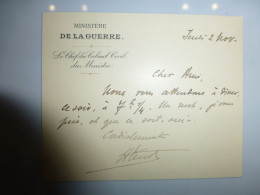 MINISTÈRE
DE LA GUERRE.
Le Chef du Cabinet Civil
du Ministre
Jeudi 2 Nov.
Cher Ami,
Nous vous attendons à dîner,
ce soir, à 7h 3/4. Un mot, je vous
prie, et que ce soit oui.
Cordialement